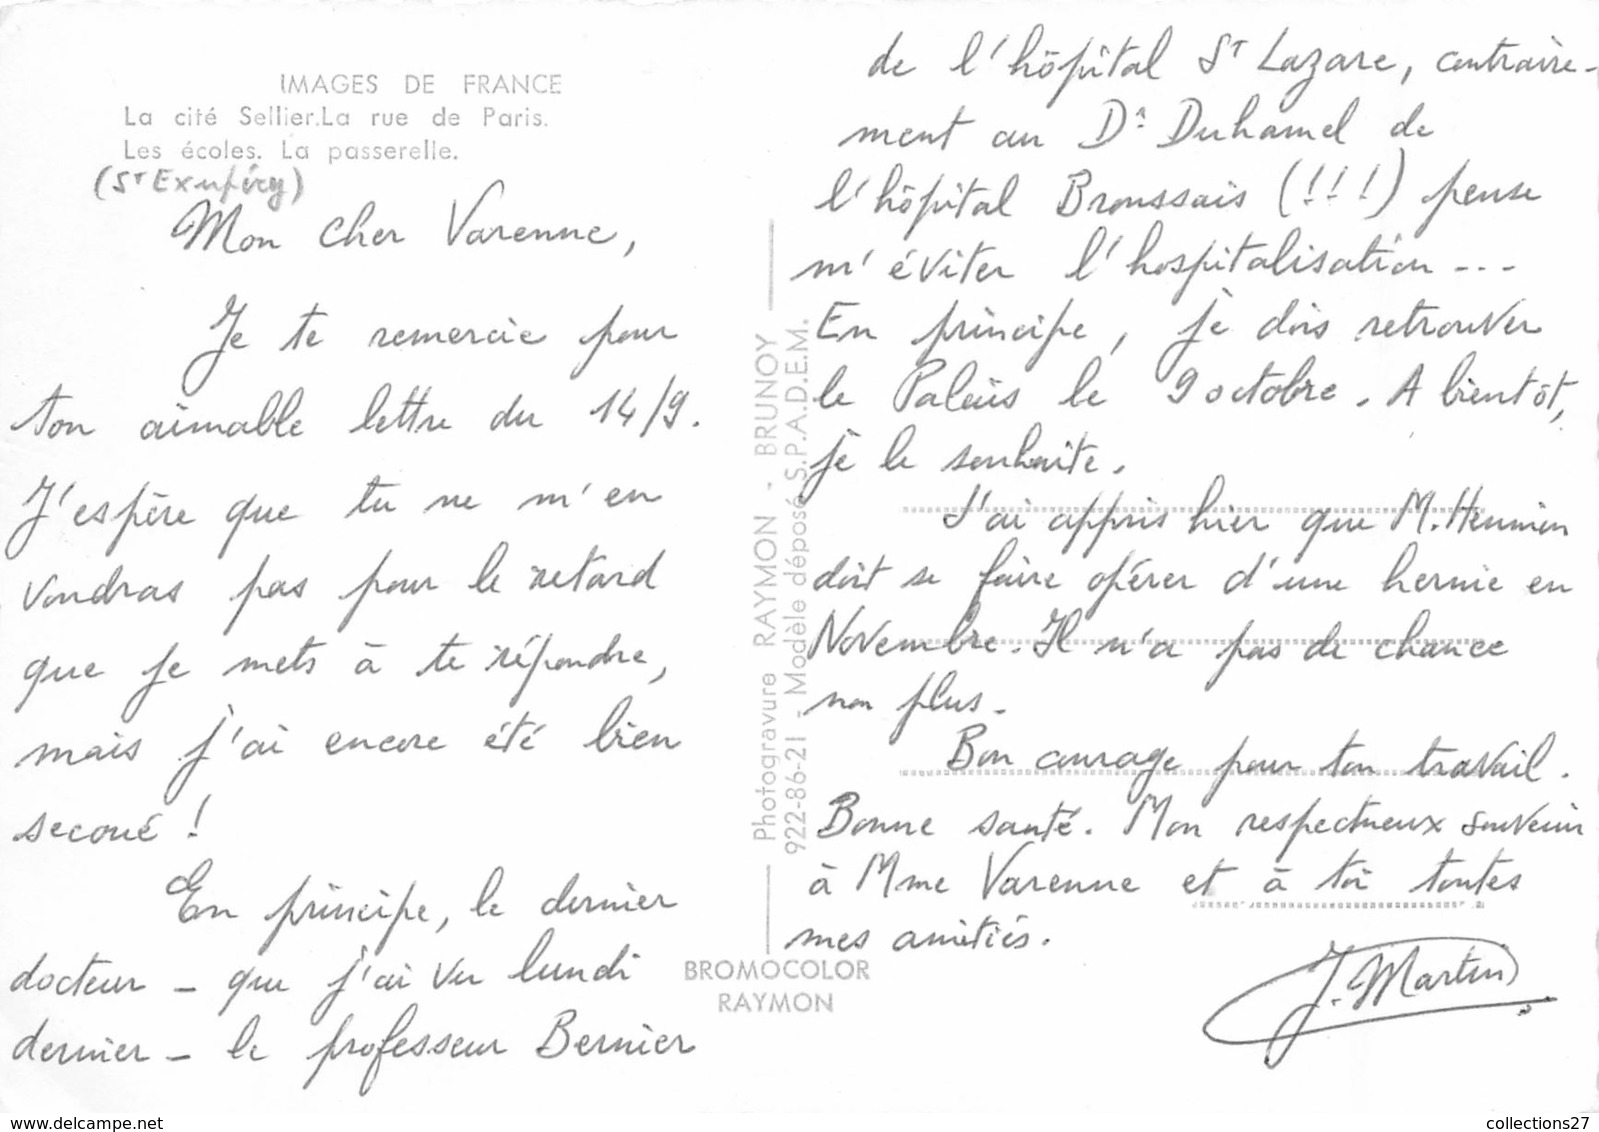 IMAGES DE FRANCE
La cité Sellier. La rue de Paris.
Les écoles. La passerelle.
(St Exupéry)
Mon cher Varenne,
Je te remercie pour
ton aimable lettre du 14/9.
J'espère que tu ne m'en
voudras pas pour le retard
que je mets à te répondre,
mais j'ai encore été bien
secoué !
En principe, le dernier
docteur – que j'ai vu lundi
dernier – le professeur Bernier
de l'hôpital St Lazare, contraire-
ment au Dr Duhamel de
l'hôpital Broussais (!!!) pense
m'éviter l'hospitalisation ...
En principe, je dois retrouver
le Palais le 9 octobre. A bientôt,
je le souhaite.
J'ai appris hier que M. Hennion
doit se faire opérer d'une hernie en
Novembre. Il n'a pas de chance
non plus.
Bon courage pour ton travail.
Bonne santé. Mon respectueux souvenir
à Mme Varenne et à toi toutes
mes amitiés.
J. Martin
Photogravure RAYMON - BRUNOY
922-86-21 - Modèle déposé S.P.A.D.E.M.
BROMOCOLOR
RAYMON
www.delcampe.net
collections27